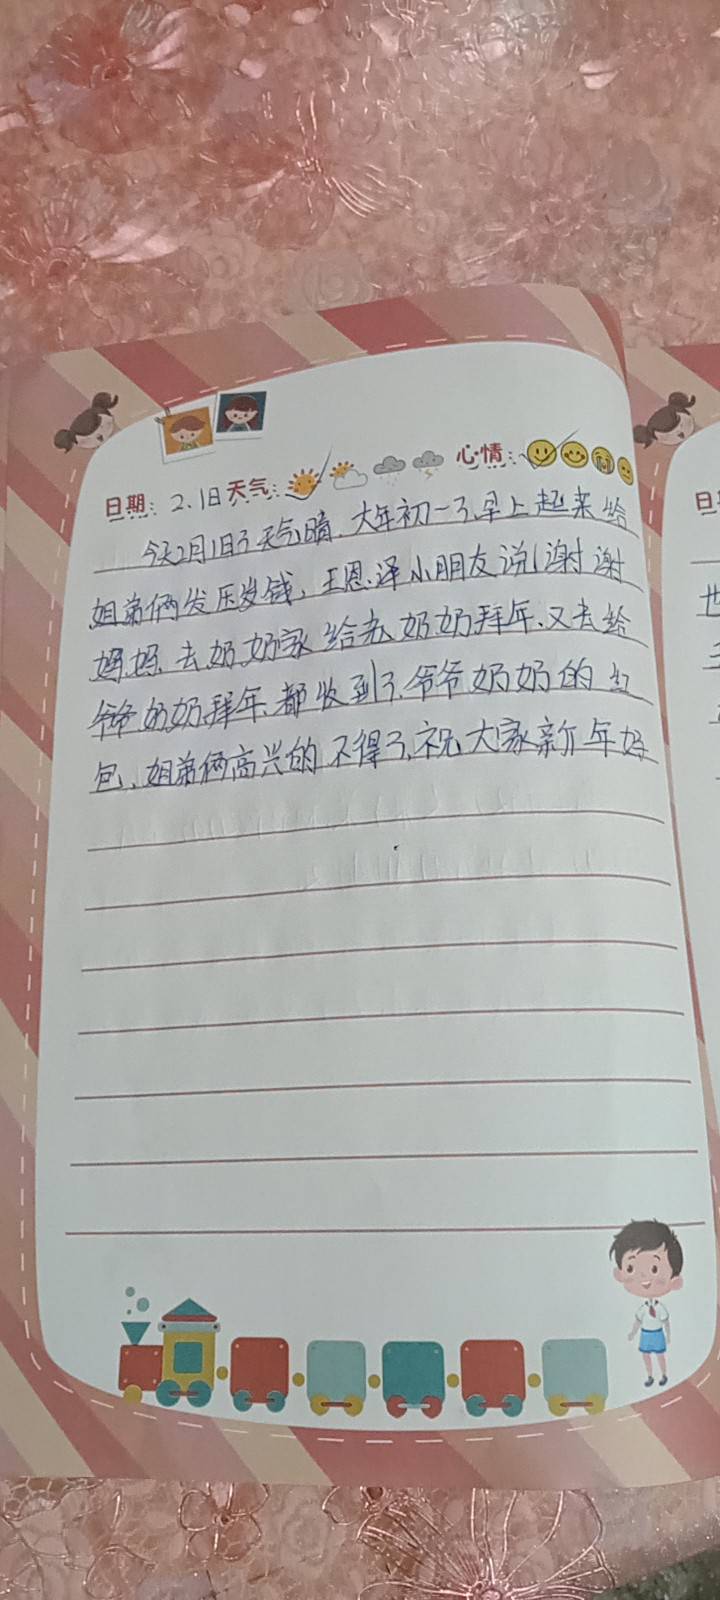 日期：2.1日 天气： 心情：
今天2月1日了天气晴，大年初一了，早上起来给
姐弟俩发压岁钱，王恩泽小朋友说谢谢
妈妈，去奶奶家给老奶奶拜年，又去给
爷爷奶奶拜年，都收到了，爷爷奶奶的红
包，姐弟俩高兴的不得了，祝大家新年好